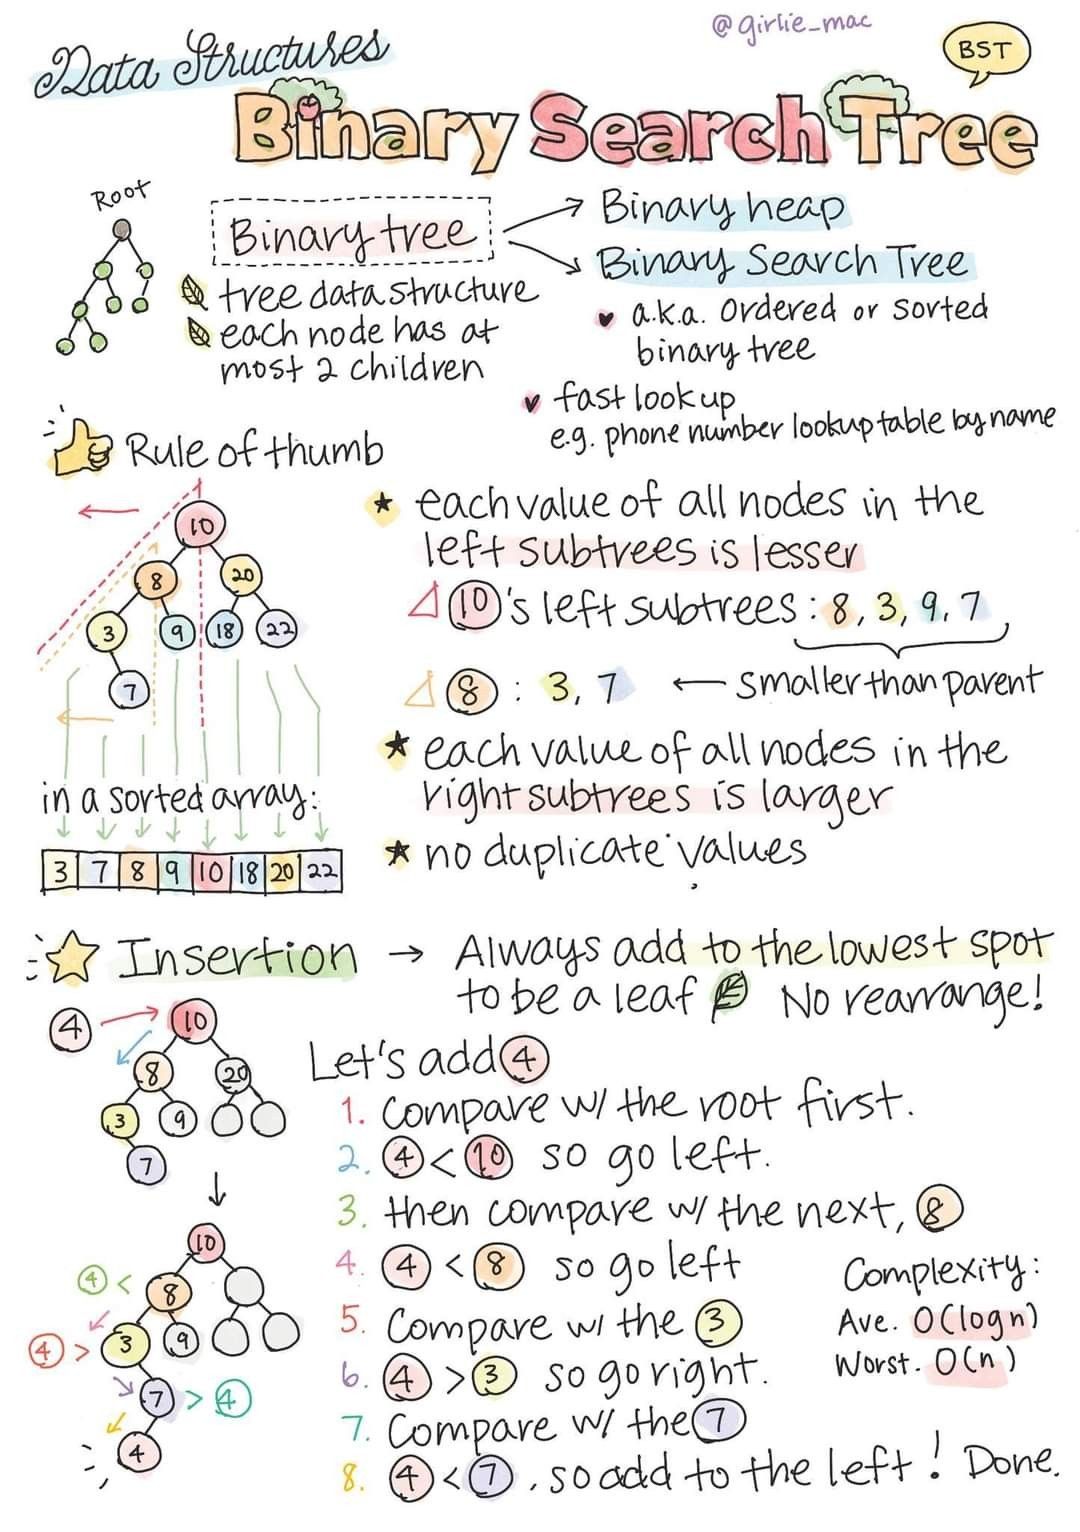 @girlie_mac
Data Structures
BST
Binary Search Tree
Root
Binary tree
Binary heap
Binary Search Tree
tree data structure
each node has at
most 2 children
a.k.a. Ordered or Sorted
binary tree
fast lookup
e.g. phone number lookup table by name
Rule of thumb
10
8
20
3
9
18
22
7
in a sorted array:
3 7 8 9 10 18 20 22
each value of all nodes in the
left subtrees is lesser
10's left subtrees: 8, 3, 9, 7
8: 3, 7 ← smaller than parent
each value of all nodes in the
right subtrees is larger
no duplicate values
Insertion → Always add to the lowest spot
to be a leaf No rearrange!
4
10
8
20
3
9
7
Let's add 4
1. Compare w/ the root first.
2. 4 < 10 so go left.
3. then compare w/ the next, 8
4. 4 < 8 so go left
5. Compare w/ the 3
6. 4 > 3 so go right.
7. Compare w/ the 7
8. 4 < 7, so add to the left! Done.
10
4 <
8
4 >
3
9
7 > 4
4
Complexity:
Ave. O(log n)
Worst. O(n)